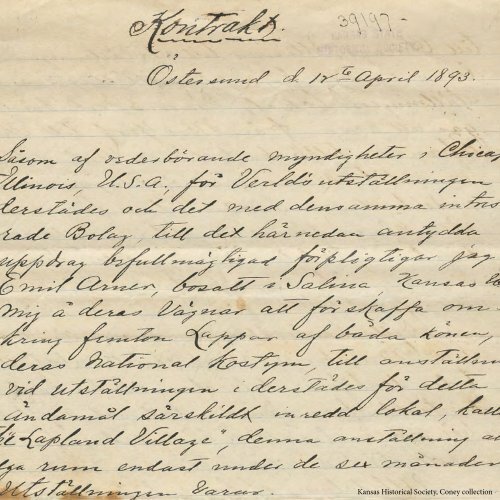 Kontrakt.
39/97-
Östersund d. 12te April 1893.
Såsom af vederbörande myndigheter i Chica
Illinois, U.S.A., för Verldsutställningen
derstädes och det med densamma intres
rade Bolag, till det härnedan antydda
uppdrag befullmägtigad förpligtigar jag
Emil Arner, bosatt i Salina, Kansas
mig å deras Vägnar att förskaffa om
kring femton Lappar af båda könen,
deras National Kostym, till anställn
vid utställningen i derstädes för detta
ändamål särskildt inredd lokal, kall
"Lapland Village", denna anställning
rum endast under de sex månader
Utställningen varar.
Kansas Historical Society, Coney collection